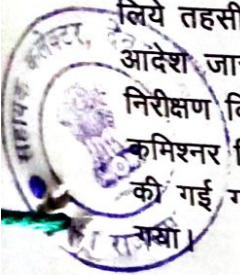 लिये तहसी
आदेश जा
निरीक्षण
कमिश्नर
की गई
गया।
सहायक कलेक्टर,